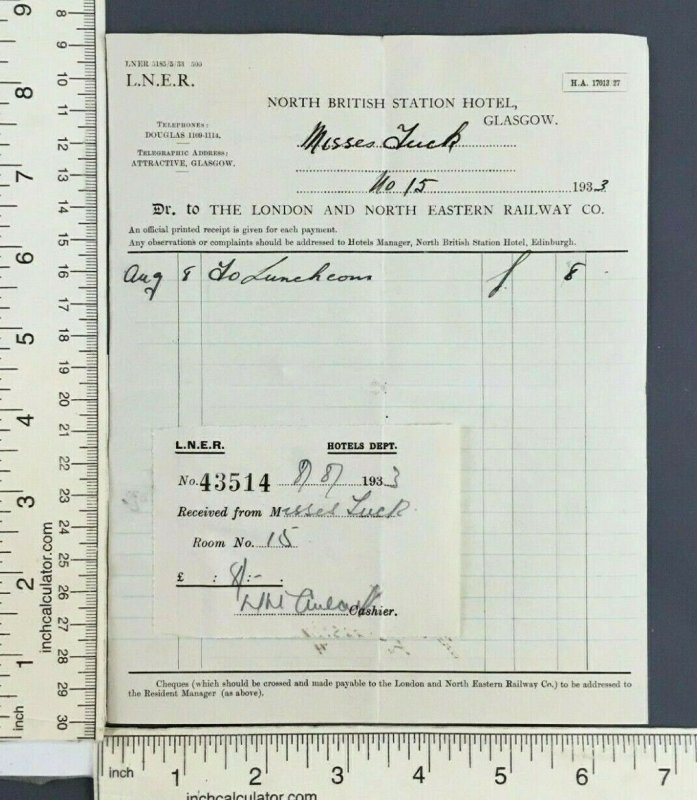 LNER 5185/5/33 500
L.N.E.R.
H.A. 17013/27
NORTH BRITISH STATION HOTEL,
GLASGOW.
TELEPHONES:
DOUGLAS 1109-1114.
TELEGRAPHIC ADDRESS:
ATTRACTIVE, GLASGOW.
Misses Tuck
No 15 1933
Dr. to THE LONDON AND NORTH EASTERN RAILWAY CO.
An official printed receipt is given for each payment.
Any observations or complaints should be addressed to Hotels Manager, North British Station Hotel, Edinburgh.
Aug 8 To Luncheons 8
L.N.E.R. HOTELS DEPT.
No. 43514 8/8/ 1933
Received from Misses Tuck
Room No. 15
£ : 8/:- :
Cashier.
Cheques (which should be crossed and made payable to the London and North Eastern Railway Co.) to be addressed to
the Resident Manager (as above).
9
8
7
6
5
4
3
2
1
inch
inchcalculator.com
8
9
10
11
12
13
14
15
16
17
18
19
20
21
22
23
24
25
26
27
28
29
30
inch 1 2 3 4 5 6 7
inchcalculator.com